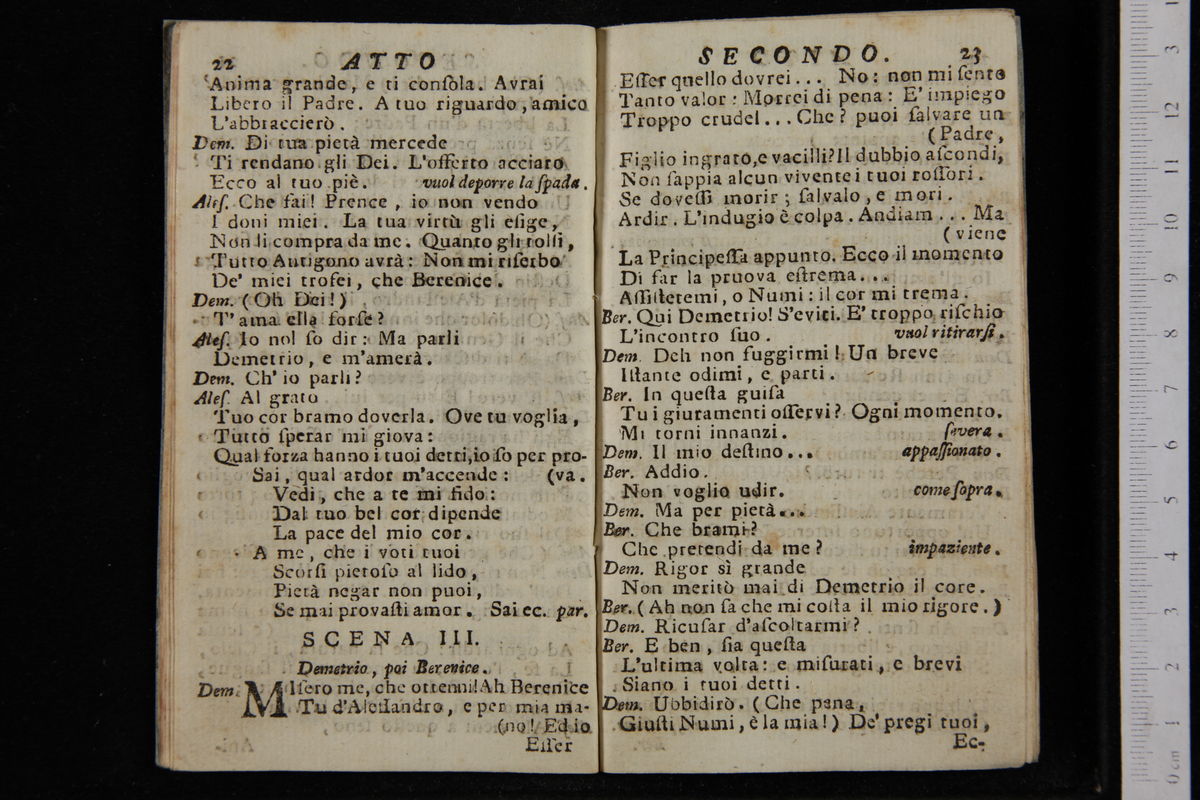 22 ATTO
Anima grande, e ti conſola. Avrai
Libero il Padre. A tuo riguardo, amico
L'abbraccierò.
Dem. Di tua pietà mercede
Ti rendano gli Dei. L'offerto acciaro
Ecco al tuo piè. vuol deporre la ſpada.
Aleſ. Che fai! Prence, io non vendo
I doni miei. La tua virtù gli eſige,
Non li compra da me. Quanto gli tolſi,
Tutto Antigono avrà: Non mi riſerbo
De' miei trofei, che Berenice.
Dem. (Oh Dei!)
T'ama ella forſe?
Aleſ. Io nol ſo dir: Ma parli
Demetrio, e m'amerà.
Dem. Ch'io parli?
Aleſ. Al grato
Tuo cor bramo doverla. Ove tu voglia,
Tutto ſperar mi giova:
Qual forza hanno i tuoi detti, io ſo per pro-
Sai, qual ardor m'accende: (va.
Vedi, che a te mi fido:
Dal tuo bel cor dipende
La pace del mio cor.
A me, che i voti tuoi
Scorſi pietoſo al lido,
Pietà negar non puoi,
Se mai provaſti amor. Sai ec. par.
SCENA III.
Demetrio, poi Berenice.
Dem. Miſero me, che ottenni! Ah Berenice
Tu d'Aleſſandro, e per mia ma-
(no! Ed io
Eſſer
SECONDO. 23
Eſſer quello dovrei... No: non mi ſento
Tanto valor: Morrei di pena: E' impiego
Troppo crudel... Che? puoi ſalvare un
(Padre,
Figlio ingrato, e vacilli? Il dubbio aſcondi,
Non ſappia alcun vivente i tuoi roſſori.
Se doveſſi morir; ſalvalo, e mori.
Ardir. L'indugio è colpa. Andiam... Ma
(viene
La Principeſſa appunto. Ecco il momento
Di far la pruova eſtrema...
Aſſiſtetemi, o Numi: il cor mi trema.
Ber. Qui Demetrio! S'eviti. E' troppo riſchio
L'incontro ſuo. vuol ritirarſi.
Dem. Deh non fuggirmi! Un breve
Iſtante odimi, e parti.
Ber. In queſta guiſa
Tu i giuramenti oſſervi? Ogni momento.
Mi torni innanzi. ſevera.
Dem. Il mio deſtino... appaſſionato.
Ber. Addio.
Non voglio udir. come ſopra.
Dem. Ma per pietà...
Ber. Che brami?
Che pretendi da me? impaziente.
Dem. Rigor sì grande
Non meritò mai di Demetrio il core.
Ber. (Ah non ſa che mi coſta il mio rigore.)
Dem. Ricuſar d'aſcoltarmi?
Ber. E ben, ſia queſta
L'ultima volta: e miſurati, e brevi
Siano i tuoi detti.
Dem. Ubbidirò. (Che pena,
Giuſti Numi, è la mia!) De' pregi tuoi,
Ec-